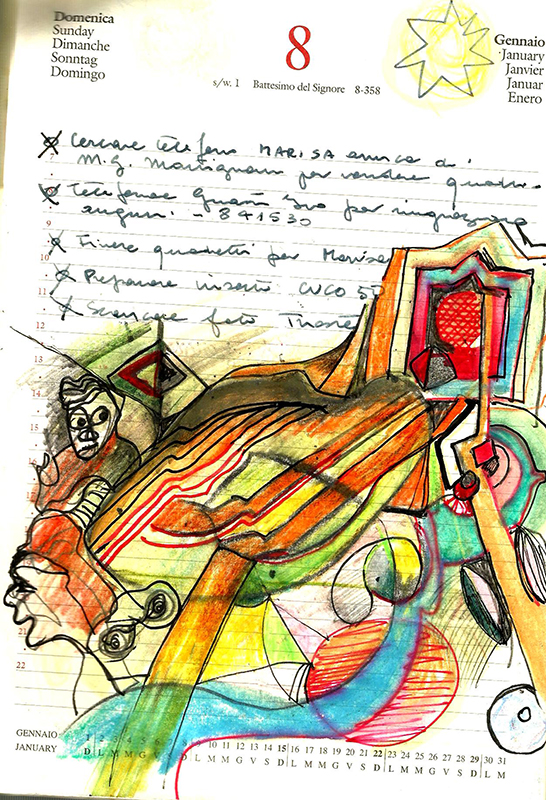 Domenica
Sunday
Dimanche
Sonntag
Domingo
8
s/w. 1 Battesimo del Signore 8-358
Gennaio
January
Janvier
Januar
Enero
Cercare telefono MARISA amica di
M.G. per vendere quadri
7
Telefonare per
auguri - 841530
9
Finire quadretti per Marisa
10
11
Preparare CUCO
12
Scaricare foto Trieste
13
14
15
16
21
22
GENNAIO 1 2 3 4 5 6 10 11 12 13 14 15 16 17 18 19 20 21 22 23 24 25 26 27 28 29 30 31
JANUARY D L M M G V S D L M M G V S D L M M G V S D L M M G V S D L M